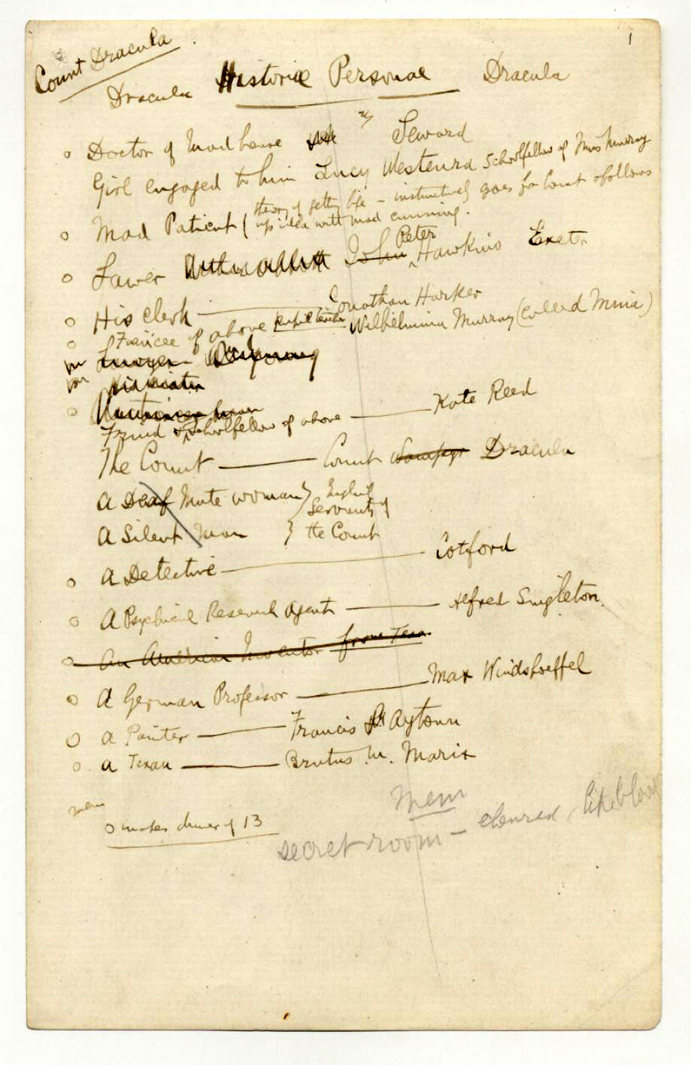 1
Count Dracula
Dracula Historiae Personae Dracula
Doctor of Mad house Seward
Girl engaged to him Lucy Westenra Schoolfellow of Miss Murray
Mad Patient (theory of getting life – instinctively goes for Count & follows
up idea with mad cunning.
Lawer John Peter Hawkins Exeter
His clerk — Jonathan Harker
Fiancee of above pupil teacher Wilhelmina Murray (called Mina)
Lawyer
his sister
Friend & schoolfellow of above — Kate Reed
The Count — Count Dracula
a Deaf Mute woman } English
Servants of
a Silent Man } the Count
a Detective — Cotford
a Psychical Research Agent — Alfred Singleton.
An American Inventor from Texas.
a German Professor — Max Windshoeffel
a Painter — Francis Aytown
a Texan — Brutus M. Marix
mem
makes dinner of 13
Mem
secret room – coloured like blood